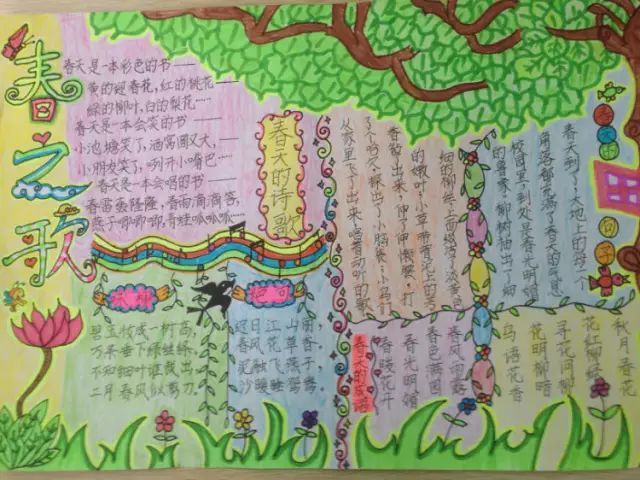 春之歌
春天是一本彩色的书——
黄的迎春花,红的桃花——
绿的柳叶,白的梨花……
春天是一本会笑的书——
小池塘笑了,酒窝圆又大,——
小朋友笑了,咧开小嘴巴……
春天是一本会唱的书——
春雷轰隆隆,春雨滴滴答,
燕子唧唧唧,青蛙呱呱呱…
春天的诗歌
咏柳
碧玉妆成一树高,
万条垂下绿丝绦。
不知细叶谁裁出,
二月春风似剪刀。
绝句
迟日江山丽,
春风花草香。
泥融飞燕子,
沙暖睡鸳鸯。
句子
春天到了,大地上的每一个
角落都充满了春天的气息
校园里,到处是春光明媚
的景象。柳树抽出了细
细的柳丝,上面缀满了淡黄色
的嫩叶;小草带着泥土的芳
香钻了出来,伸了伸懒腰,打
了个哈欠,探出了小脑袋;小鸟们
从家里飞了出来,唱着动听的歌
春天的成语
秋月春花
花红柳绿
寻花问柳
花明柳暗
鸟语花香
春色满园
春光明媚
春暖花开